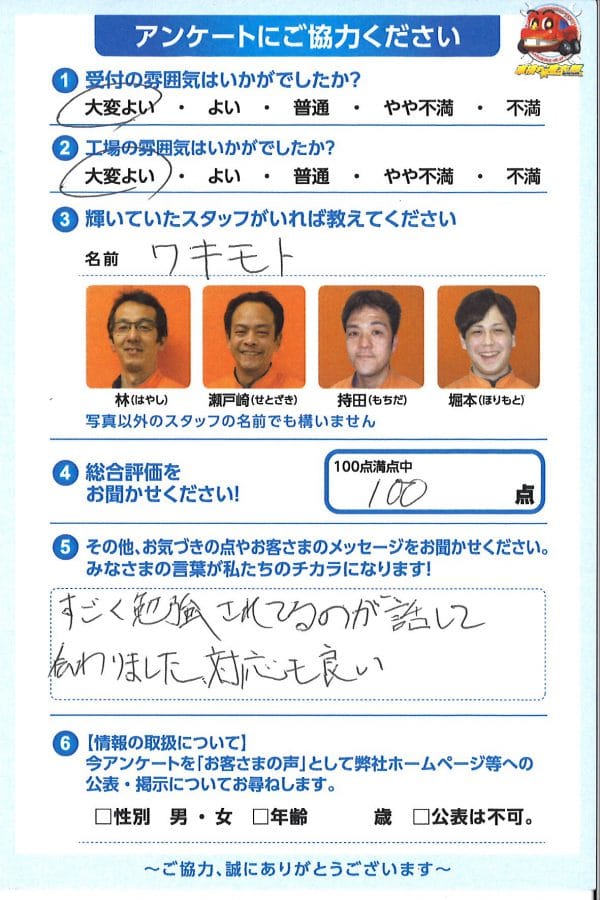 アンケートにご協力ください
1 受付の雰囲気はいかがでしたか?
大変よい ・ よい ・ 普通 ・ やや不満 ・ 不満
2 工場の雰囲気はいかがでしたか?
大変よい ・ よい ・ 普通 ・ やや不満 ・ 不満
3 輝いていたスタッフがいれば教えてください
名前 ワキモト
林(はやし) 瀬戸崎(せとざき) 持田(もちだ) 堀本(ほりもと)
写真以外のスタッフの名前でも構いません
4 総合評価を
お聞かせください!
100点満点中
100 点
5 その他、お気づきの点やお客さまのメッセージをお聞かせください。
みなさまの言葉が私たちのチカラになります!
すごく勉強されてるのが話して
伝わりました、対応も良い
6 【情報の取扱について】
今アンケートを「お客さまの声」として弊社ホームページ等への
公表・掲示についてお尋ねします。
□性別 男・女 □年齢 歳 □公表は不可。
~ご協力、誠にありがとうございます~